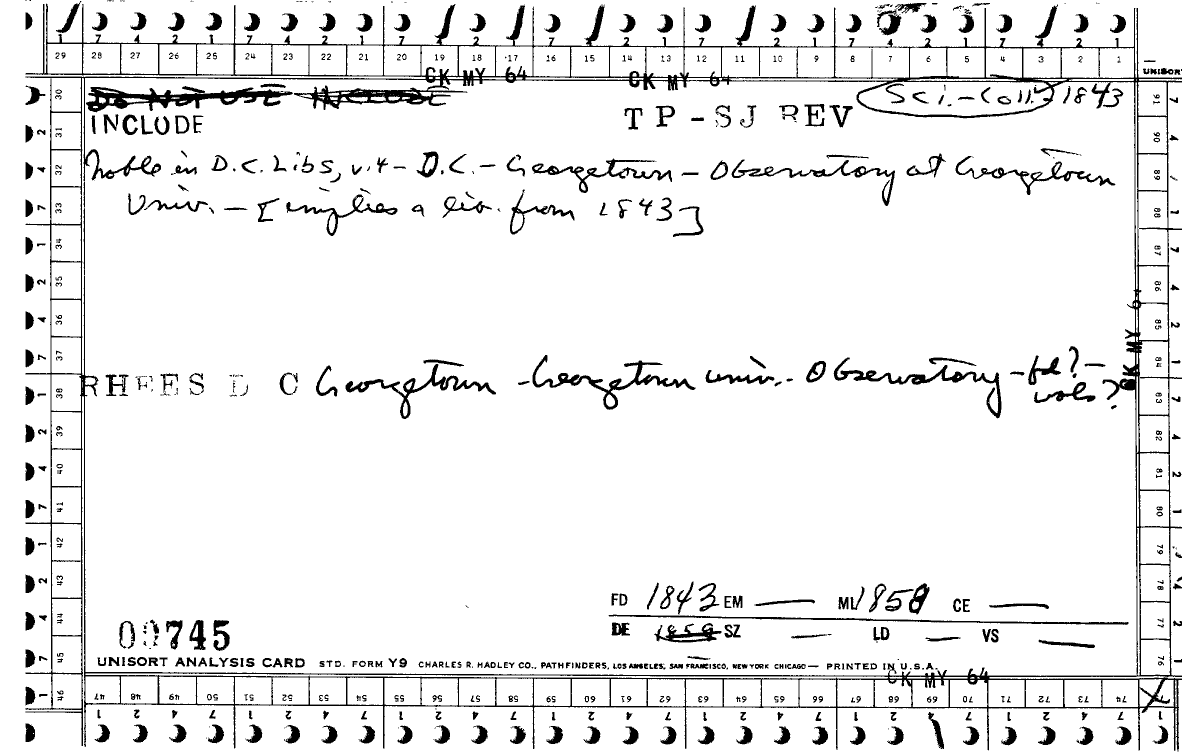 7 4 2 1 7 4 2 1 7 4 2 1 7 4 2 1 7 4 2 1 7 4 2 1 7 4 2 1
29 28 27 26 25 24 23 22 21 20 19 18 17 16 15 14 13 12 11 10 9 8 7 6 5 4 3 2 1
CK MY 64 CK MY 64 UNISORT
DO NOT USE INCLUDE Sci.-Coll. 1843
INCLUDE TP-SJ REV
Noble in D.C. Libs, v.4 - D.C. - Georgetown - Observatory at Georgetown
Univ. - [implies a lib. from 1843]
RHEES D C Georgetown - Georgetown Univ. - Observatory - fd? -
vols?
CK MY 64
FD 1843 EM — ML 1858 CE —
DE 1858 SZ — LD — VS —
00745
UNISORT ANALYSIS CARD STD. FORM Y9 CHARLES R. HADLEY CO., PATHFINDERS, LOS ANGELES, SAN FRANCISCO, NEW YORK CHICAGO — PRINTED IN U.S.A.
CK MY 64
30 31 32 33 34 35 36 37 38 39 40 41 42 43 44 45 46
47 48 49 50 51 52 53 54 55 56 57 58 59 60 61 62 63 64 65 66 67 68 69 70 71 72 73 74
91 90 89 88 87 86 85 84 83 82 81 80 79 78 77 76